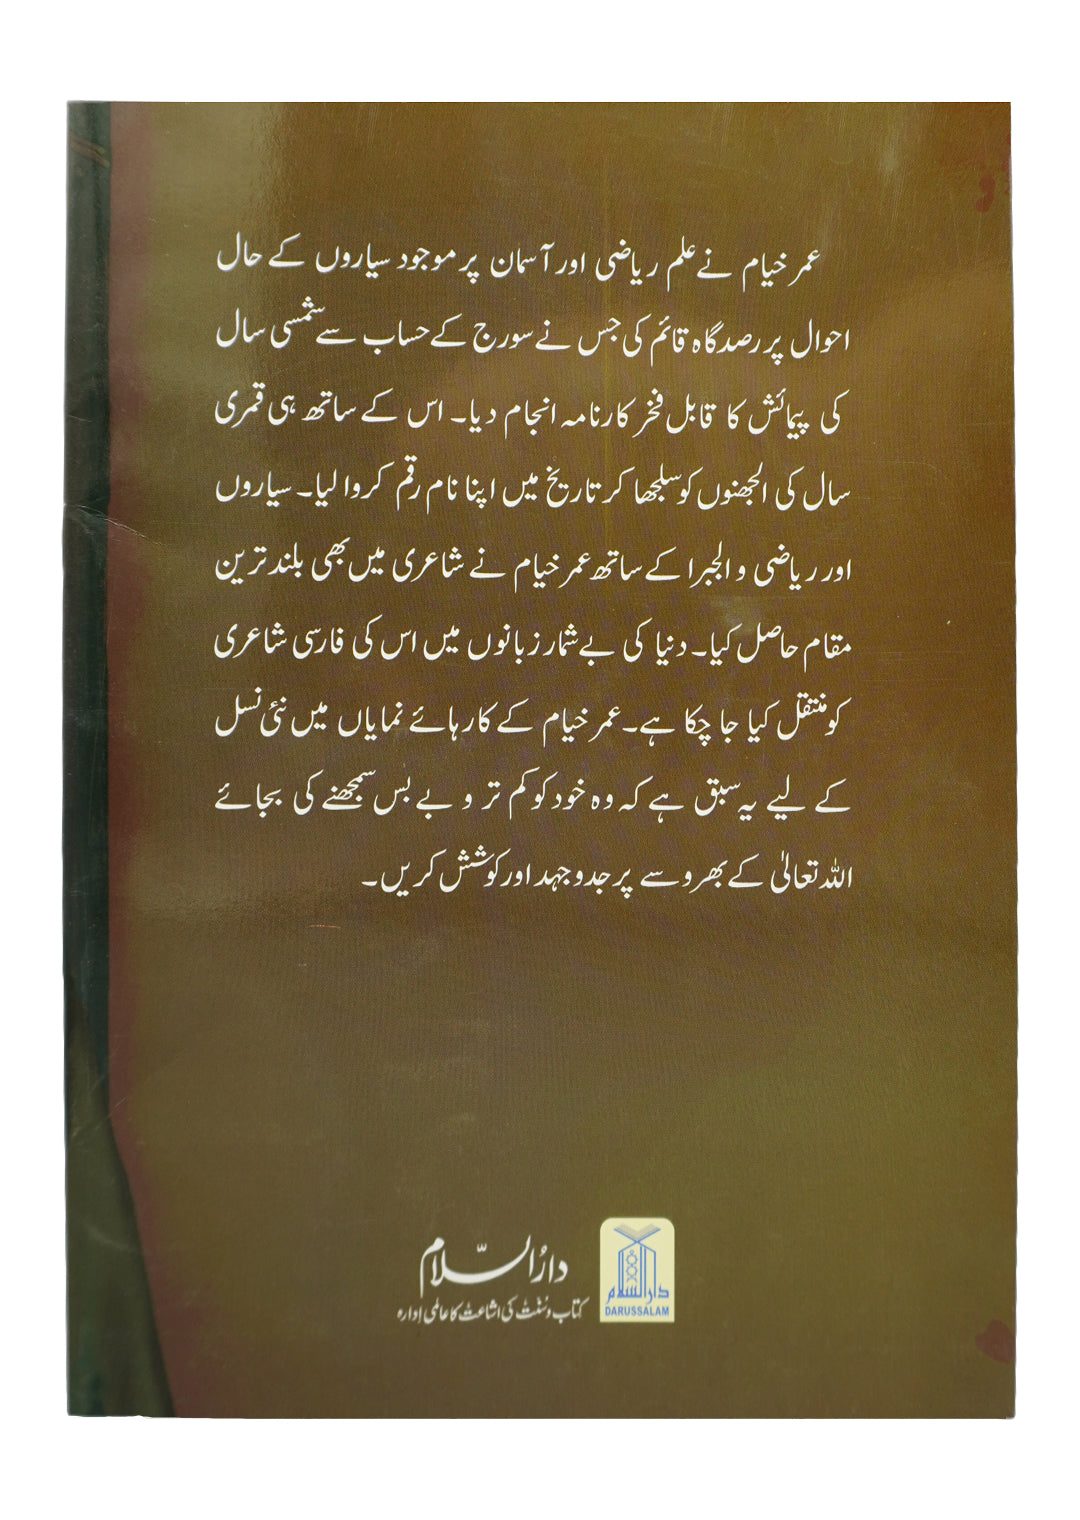 عمر خیام نے علم ریاضی اور آسمان پر موجود سیاروں کے حال
احوال پر رصدگاہ قائم کی جس نے سورج کے حساب سے شمسی سال
کی پیمائش کا قابل فخر کارنامہ انجام دیا۔ اس کے ساتھ ہی قمری
سال کی الجھنوں کو سلجھا کر تاریخ میں اپنا نام رقم کروا لیا۔ سیاروں
اور ریاضی و الجبرا کے ساتھ عمر خیام نے شاعری میں بھی بلند ترین
مقام حاصل کیا۔ دنیا کی بے شمار زبانوں میں اس کی فارسی شاعری
کو منتقل کیا جا چکا ہے۔ عمر خیام کے کارہائے نمایاں میں نئی نسل
کے لیے یہ سبق ہے کہ وہ خود کو کم تر و بے بس سمجھنے کی بجائے
اللہ تعالیٰ کے بھروسے پر جدوجہد اور کوشش کریں۔
دارُالسّلام
کتاب و سُنّت کی اشاعت کا عالمی اِدارہ
دارالسلام
DARUSSALAM